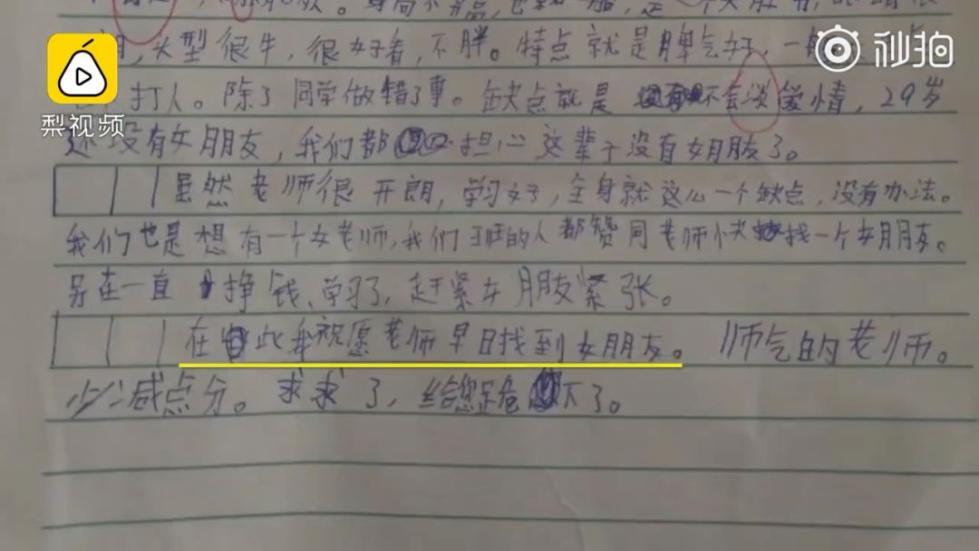 头型很牛，很好看，不胖。特点就是脾气好，一般
秒拍
打人。除了同学做错了事。缺点就是不会谈爱情，29岁
梨视频
还没有女朋友，我们都担心这辈子没有女朋友了。
虽然老师很开朗，学习好，全身就这么一个缺点，没有办法。
我们也是想有一个女老师，我们班的人都赞同老师快找一个女朋友。
另在一直挣钱、学习了，赶紧女朋友紧张。
在此我祝愿老师早日找到女朋友。师气的老师。
少减点分。求求了，给您跪下了。